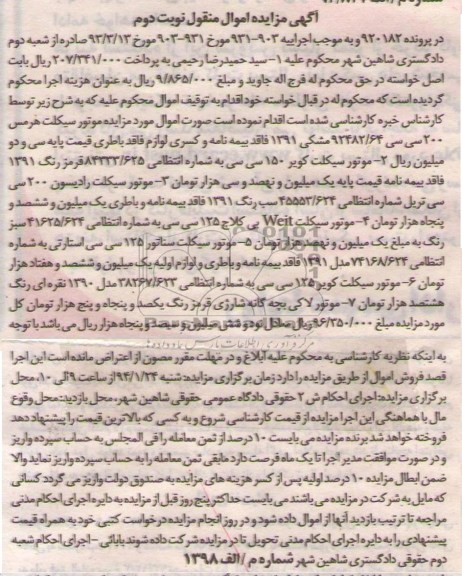 آگهی مزایده اموال منقول نوبت دوم
در پرونده 920182 و به موجب اجراییه 903-931 مورخ 931-903 مورخ 93/3/13 صادره از شعبه دوم
دادگستری شاهین شهر محکوم علیه 1- سید حمیدرضا رحیمی به پرداخت 207/341/000 ریال بابت
اصل خواسته در حق محکوم له فرج اله جاوید و مبلغ 9/865/000 ریال به عنوان هزینه اجرا محکوم
گردیده است که محکوم له در قبال خواسته خود اقدام به توقیف اموال محکوم علیه که به شرح زیر توسط
کارشناس خبره کارشناسی شده است اقدام نموده است صورت اموال مورد مزایده موتور سیکلت هرمس
200 سی سی 92482/64 مشکی 1391 فاقد بیمه نامه و کسری لوازم فاقد باطری قیمت پایه سی و دو
میلیون ریال 2- موتور سیکلت کویر 150 سی سی به شماره انتظامی 84333/625 قرمز رنگ 1391
فاقد بیمه نامه قیمت پایه یک میلیون و نهصد و سی هزار تومان 3- موتور سیکلت رادیسون 200 سی
سی تریل شماره انتظامی 45553/624 سب رنگ 1391 فاقد بیمه نامه و باطری یک میلیون و ششصد و
پنجاه هزار تومان 4- موتور سیکلت Weit کلاج 125 سی سی به شماره انتظامی 41625/624 سبز
رنگ به مبلغ یک میلیون و نهصد هزار تومان 5- موتور سیکلت سناتور 125 سی سی استارتی به شماره
انتظامی 74168/624 مدل 1391 فاقد بیمه نامه و باطری و لوازم اولیه یک میلیون و ششصد و هفتاد هزار
تومان 6- موتور سیکلت کویر 125 سی سی به شماره انتظامی 38267/623 مدل 1390 نقره ای رنگ
هشتصد هزار تومان 7- موتور لاکی بچه گانه شارژی قرمز رنگ یکصد و پنجاه و پنج هزار تومان کل
مورد مزایده مبلغ 96/350/000 ریال معادل نود و شش میلیون و سیصد و پنجاه هزار ریال می باشد با توجه
به اینکه نظریه کارشناسی به محکوم علیه ابلاغ و در مهلت مقرر مصون از اعتراض مانده است این اجرا
قصد فروش اموال از طریق مزایده را دارد زمان برگزاری مزایده: شنبه 94/1/24 از ساعت 9 الی 10، محل
برگزاری مزایده: اجرای احکام ش 2 حقوقی دادگاه عمومی حقوقی شاهین شهر، محل بازدید: محل وقوع
مال با هماهنگی این اجرا مزایده از قیمت کارشناسی شروع و به کسی که بالاترین قیمت را پیشنهاد دهد
فروخته خواهد شد برنده مزایده می بایست 10 درصد از ثمن معامله را فی المجلس به حساب سپرده واریز
و در صورت موافقت مدیر اجرا تا یک ماه فرصت دارد مابقی ثمن معامله را به حساب سپرده واریز نماید والا
ضمن ابطال مزایده 10 درصد اولیه پس از کسر هزینه های مزایده به صندوق دولت واریز می گردد کسانی
که مایل به شرکت در مزایده می باشند می بایست حداکثر پنج روز قبل از مزایده به دایره اجرای احکام مدنی
مراجعه تا ترتیب بازدید آنها از اموال داده شود و در روز انجام مزایده درخواست کتبی خود به همراه قیمت
پیشنهادی را به دایره اجرای احکام مدنی تحویل تا در مزایده شرکت داده شوند بابائی - اجرای احکام شعبه
دوم حقوقی دادگستری شاهین شهر شماره م / الف 1398